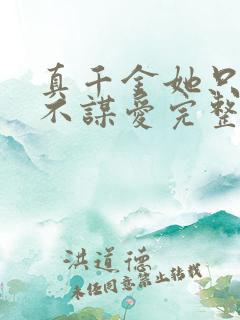 真千金她只
不謀愛完整
洪道德
未经同意禁止转载